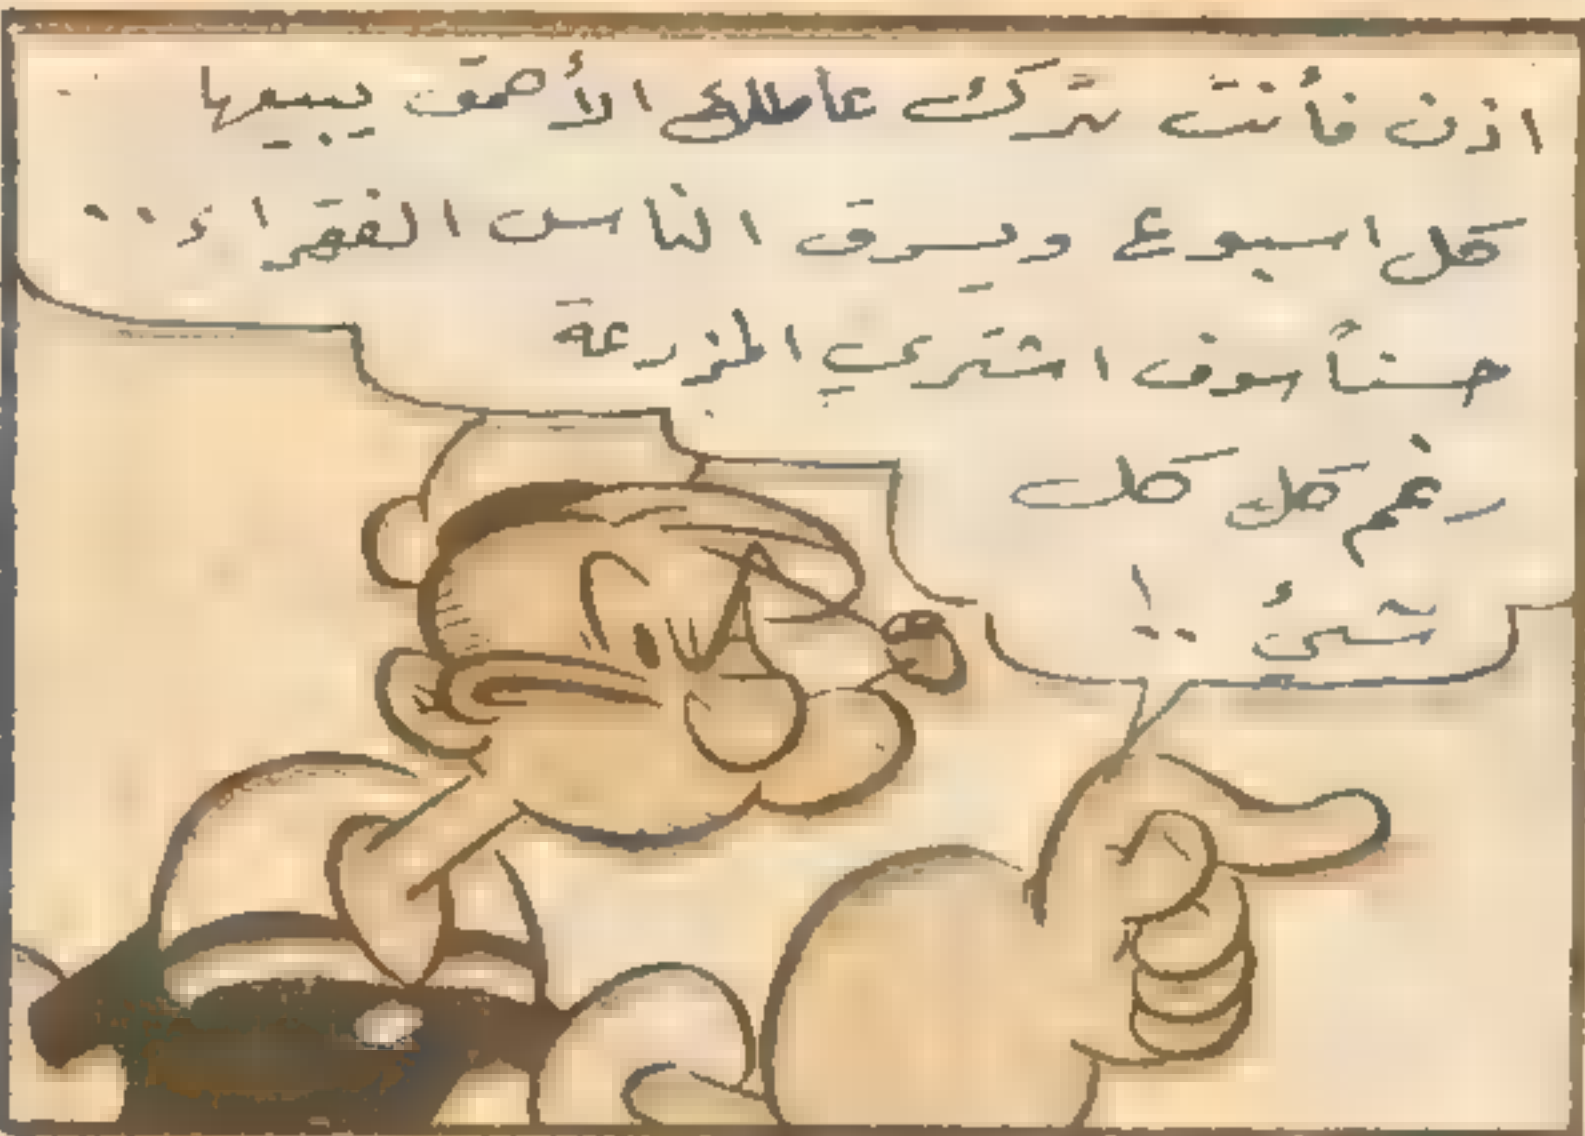 اذن فأنت تترك عاملك الأحمق يبيعها
كل اسبوع ويسرق الناس الفقراء..
حسناً سوف اشتري المزرعة
رغم كل كل
شئ ..!